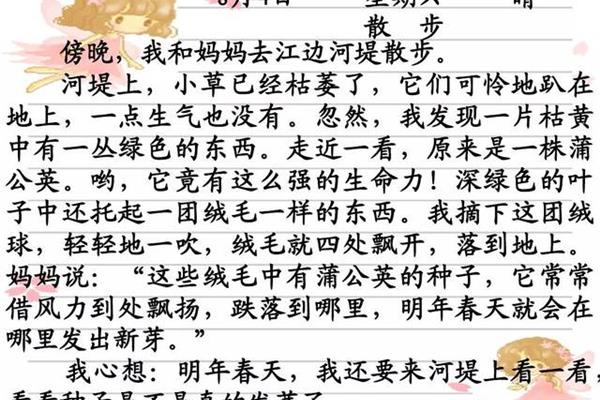 月4日 星期六 晴
散 步
傍晚，我和妈妈去江边河堤散步。
河堤上，小草已经枯萎了，它们可怜地趴在
地上，一点生气也没有。忽然，我发现一片枯黄
中有一丛绿色的东西。走近一看，原来是一株蒲
公英。哟，它竟有这么强的生命力！深绿色的叶
子中还托起一团绒毛一样的东西。我摘下这团绒
球，轻轻地一吹，绒毛就四处飘开，落到地上。
妈妈说：“这些绒毛中有蒲公英的种子，它常常
借风力到处飘扬，跌落到哪里，明年春天就会在
哪里发出新芽。”
我心想：明年春天，我还要来河堤上看一看，
看看种子是不是真的发芽了